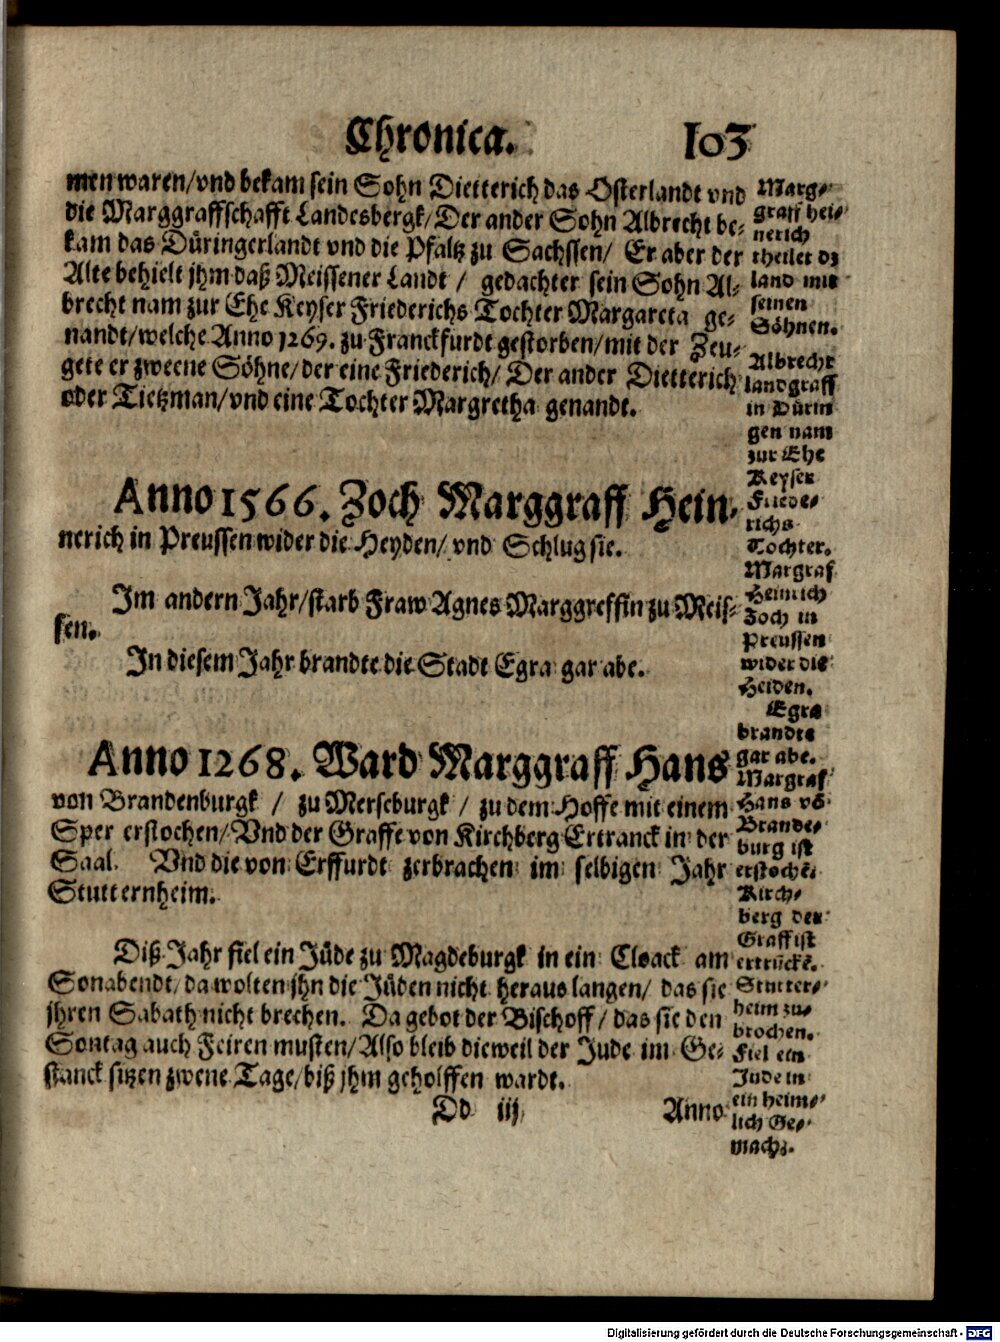 Chronica. 103
men waren/vnd bekam sein Sohn Dietterich das Osterlandt vnd
die Marggraffschafft Landesbergk/Der ander Sohn Albrecht be-
kam das Düringerlandt vnd die Pfaltz zu Sachssen/ Er aber der
Alte behielt jhm daß Meissener Landt / gedachter sein Sohn Al-
brecht nam zur Ehe Keyser Friederichs Tochter Margareta ge-
nandt/welche Anno 1269. zu Franckfurdt gestorben/mit der Zeu-
gete er zweene Söhne/der eine Friederich/ Der ander Dietterich
oder Tietzman/vnd eine Tochter Margretha genandt.
Anno 1566. Zoch Marggraff Hein-
nerich in Preussen wider die Heyden/ vnd Schlug sie.
Im andern Jahr/starb Fraw Agnes Marggreffin zu Meis-
sen.
In diesem Jahr brandte die Stadt Egra gar abe.
Anno 1268. Ward Marggraff Hans
von Brandenburgk / zu Merseburgk / zu dem Hoffe mit einem
Sper erstochen/Vnd der Graffe von Kirchberg Ertranck in der
Saal. Vnd die von Erffurdt zerbrachen im selbigen Jahr
Stutternheim.
Diß Jahr fiel ein Jüde zu Magdeburgk in ein Cloack am
Sonabendt/da wolten jhn die Jüden nicht heraus langen/ das sie
jhren Sabath nicht brechen. Da gebot der Bischoff/das sie den
Sontag auch Feiren musten/Also bleib dieweil der Jude im Ge-
stanck sitzen zwene Tage/biß jhm geholffen wardt.
Dd iij Anno
Marg-
graff Hei-
nerich
theilet dz
land mit
seinen
Söhnen.
Albrecht
landgraff
in Dürin
gen nam
zur Ehe
Keyser
Friede-
richs
Tochter.
Margraf
Heinrich
Zoch in
Preussen
wider die
Heiden.
Egra
brandte
gar abe.
Margraf
Hans vō
Brande-
burg ist
erstochē.
Kirch-
berg der
Graff ist
ertrückē.
Stutter-
heim zu-
brochen.
Fiel ein
Jude in
ein heim-
lich Ge-
mach.
Digitalisierung gefördert durch die Deutsche Forschungsgemeinschaft - DFG